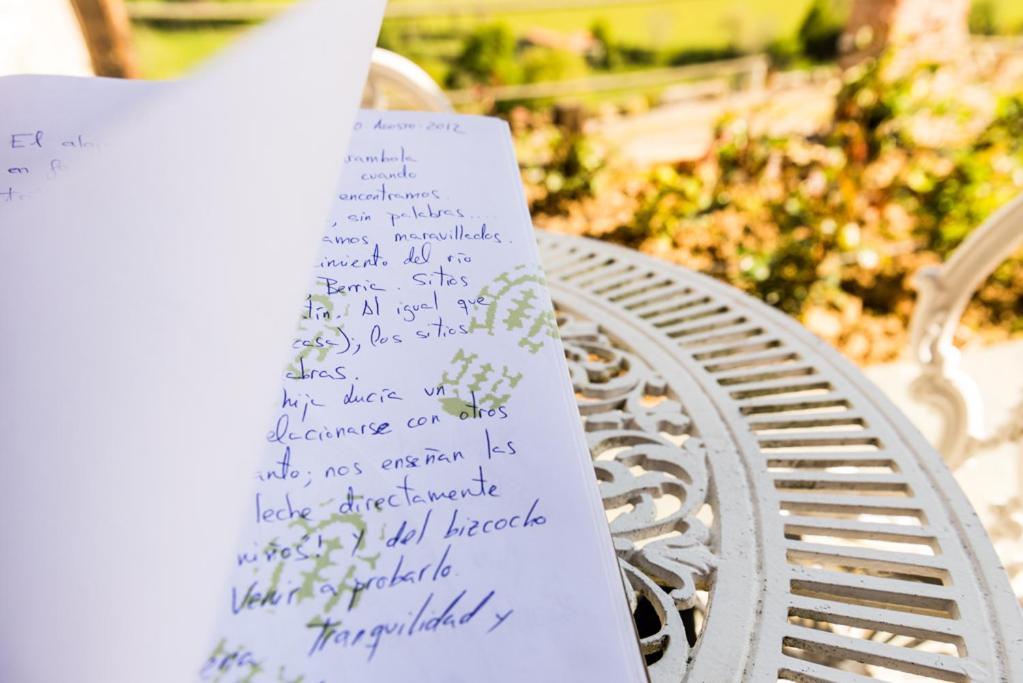 El
en
Agosto-2012
cuando
encontramos.
, sin palabras....
amos maravillados.
imiento del río
Berria. Sitios
tín. Al igual que
casa); los sitios
abras.
hija lucía un
elacionarse con otros
anto; nos enseñan las
leche directamente
niños! y del bizcocho
Venir a probarlo.
tranquilidad y